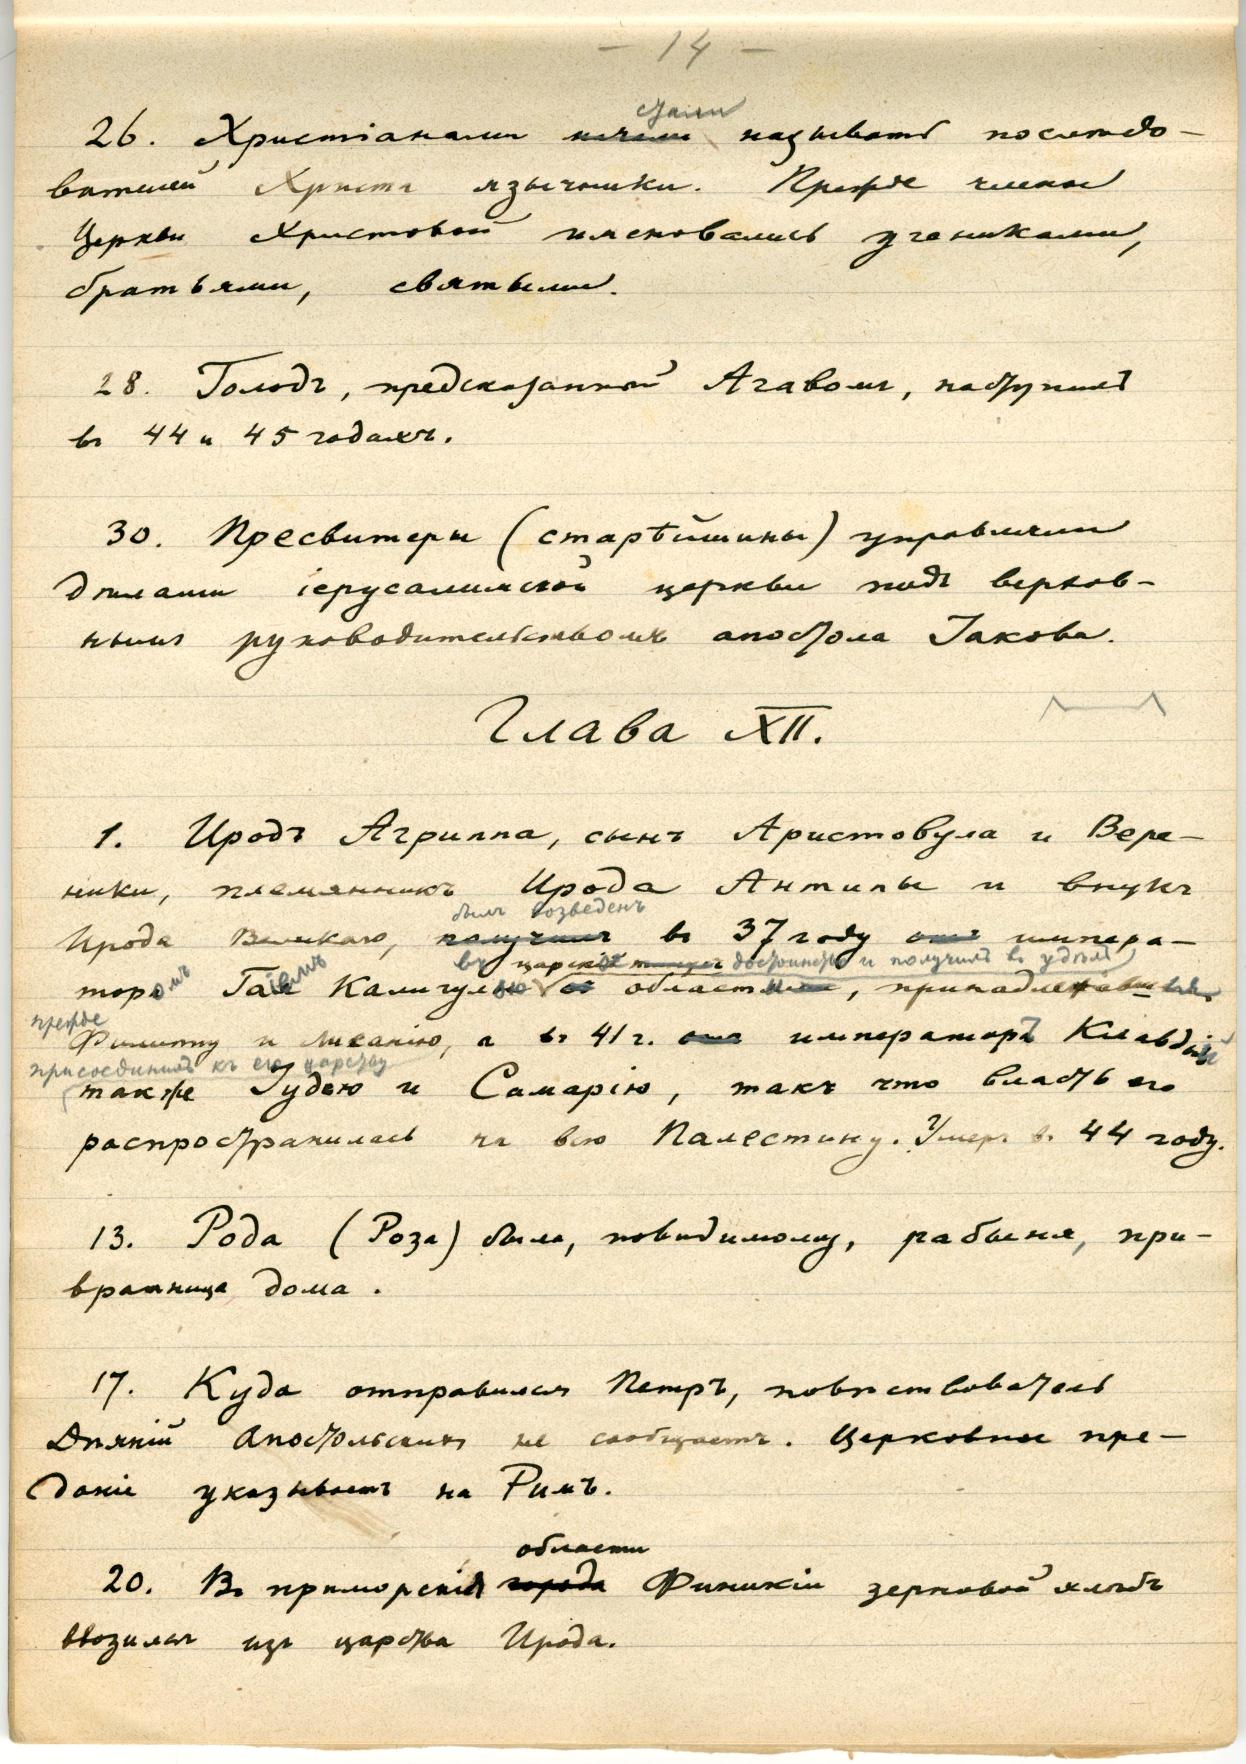 - 14 -
стали
26. Христіанами начали называть послѣдо-
вателей Христа язычники. Прежде члены
Церкви Христовой именовались учениками,
братьями, святыми.
28. Голодъ, предсказанный Агавомъ, наступилъ
въ 44 и 45 годахъ.
30. Пресвитеры (старѣйшины) управляли
дѣлами іерусалимской церкви подъ верхов-
нымъ руководительствомъ апостола Іакова.
Глава XII.
1. Иродъ Агриппа, сынъ Аристовула и Вере-
ники, племянникъ Ирода Антипы и внукъ
былъ возведенъ
Ирода Великаго, получилъ въ 37 году отъ импера-
въ царское достоинство и получилъ въ удѣлъ
торомъ Гаіемъ Калигулою области, принадлежавшія
прежде
Филиппу и Лисанію, а въ 41 г. отъ императоръ Клавдій
присоединилъ къ его царству
также Іудею и Самарію, такъ что власть его
распространилась на всю Палестину. Умеръ въ 44 году.
13. Рода (Роза) была, повидимому, рабыня, при-
вратница дома.
17. Куда отправился Петръ, повѣствователь
Дѣяній Апостольскихъ не сообщаетъ. Церковное пре-
даніе указываетъ на Римъ.
области
20. Въ приморскія города Финикіи зерновой хлѣбъ
ввозился изъ царства Ирода.